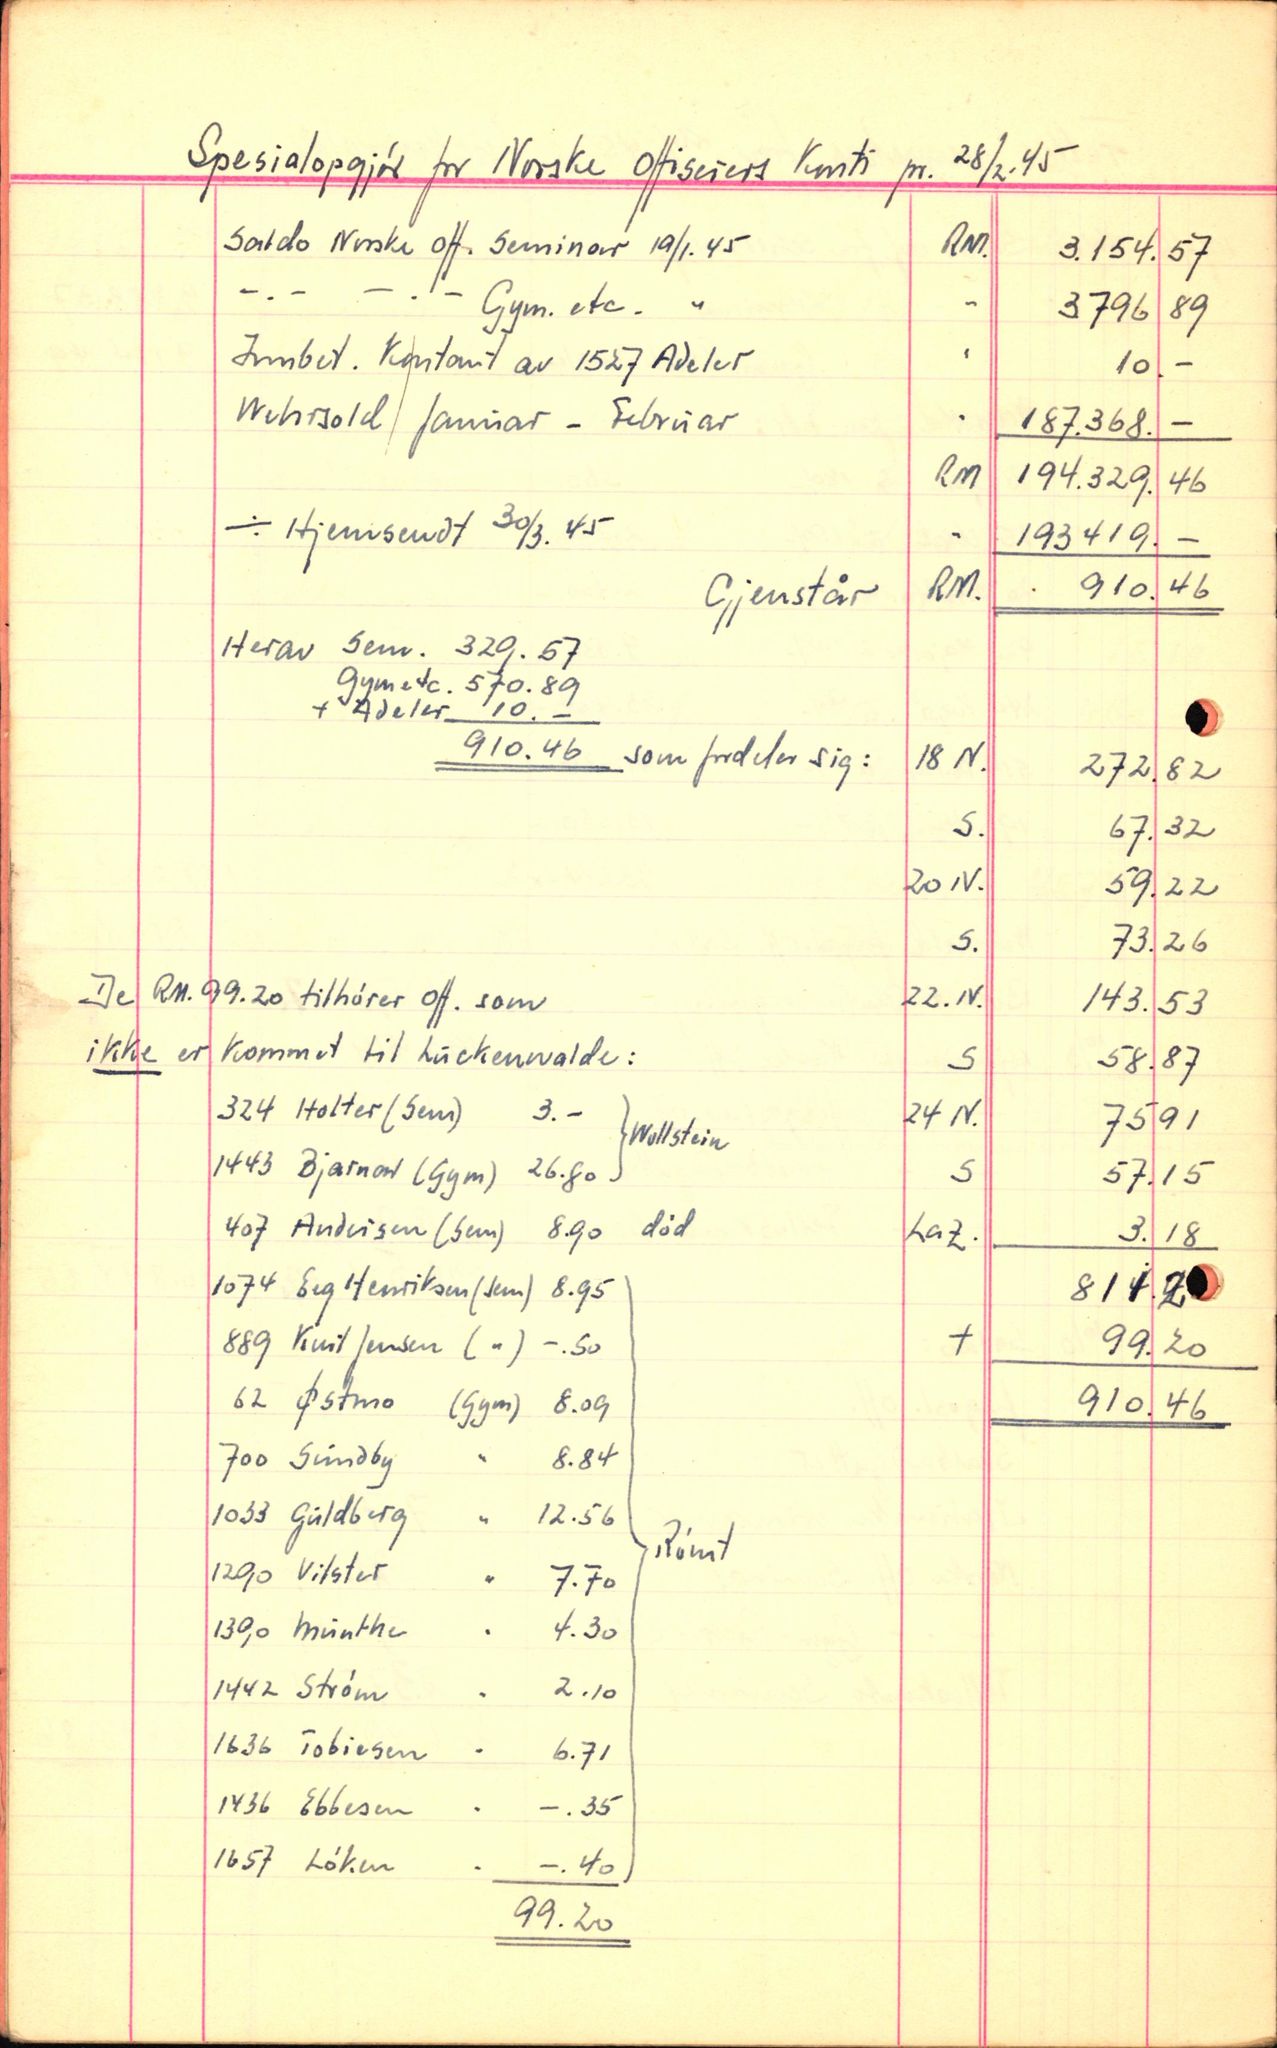 Spesialopgjör for Norske Offiserers Konti pr. 28/2.45
Saldo Norske Off. Seminar 19/1.45 RM. 3.154.57
-.- -.- Gym. etc. " " 3796 89
Innbet. Kontant av 1527 Adeler " 10.-
Wehrsold Januar - Februar " 187.368.-
RM 194.329.46
÷ Hjemsendt 30/3.45 " 193419.-
Gjenstår RM. 910.46
Herav Sem. 329.57
Gym etc. 570.89
+ Adeler 10.-
910.46 som fordeler sig: 18 N. 272.82
S. 67.32
20 N. 59.22
S. 73.26
De RM. 99.20 tilhörer off. som 22. N. 143.53
ikke er kommet til Luckenwalde: S 58.87
324 Holter (Sem) 3.- } Wollstein 24 N. 75 91
1443 Bjarnar (Gym) 26.80 S 57.15
407 Andersen (Sem) 8.90 död Laz. 3.18
1074 Eeg Henriksen (Sem) 8.95 811.2
889 Knut Jensen (") -.50 + 99.20
62 Østmo (Gym) 8.09 910.46
700 Sundby " 8.84
1033 Guldberg " 12.56
} Römt
1290 Vilster " 7.70
1390 Munthe " 4.30
1442 Ström " 2.10
1636 Tobiesen " 6.71
1436 Ebbesen " -.35
1657 Löken " -.40
99.20